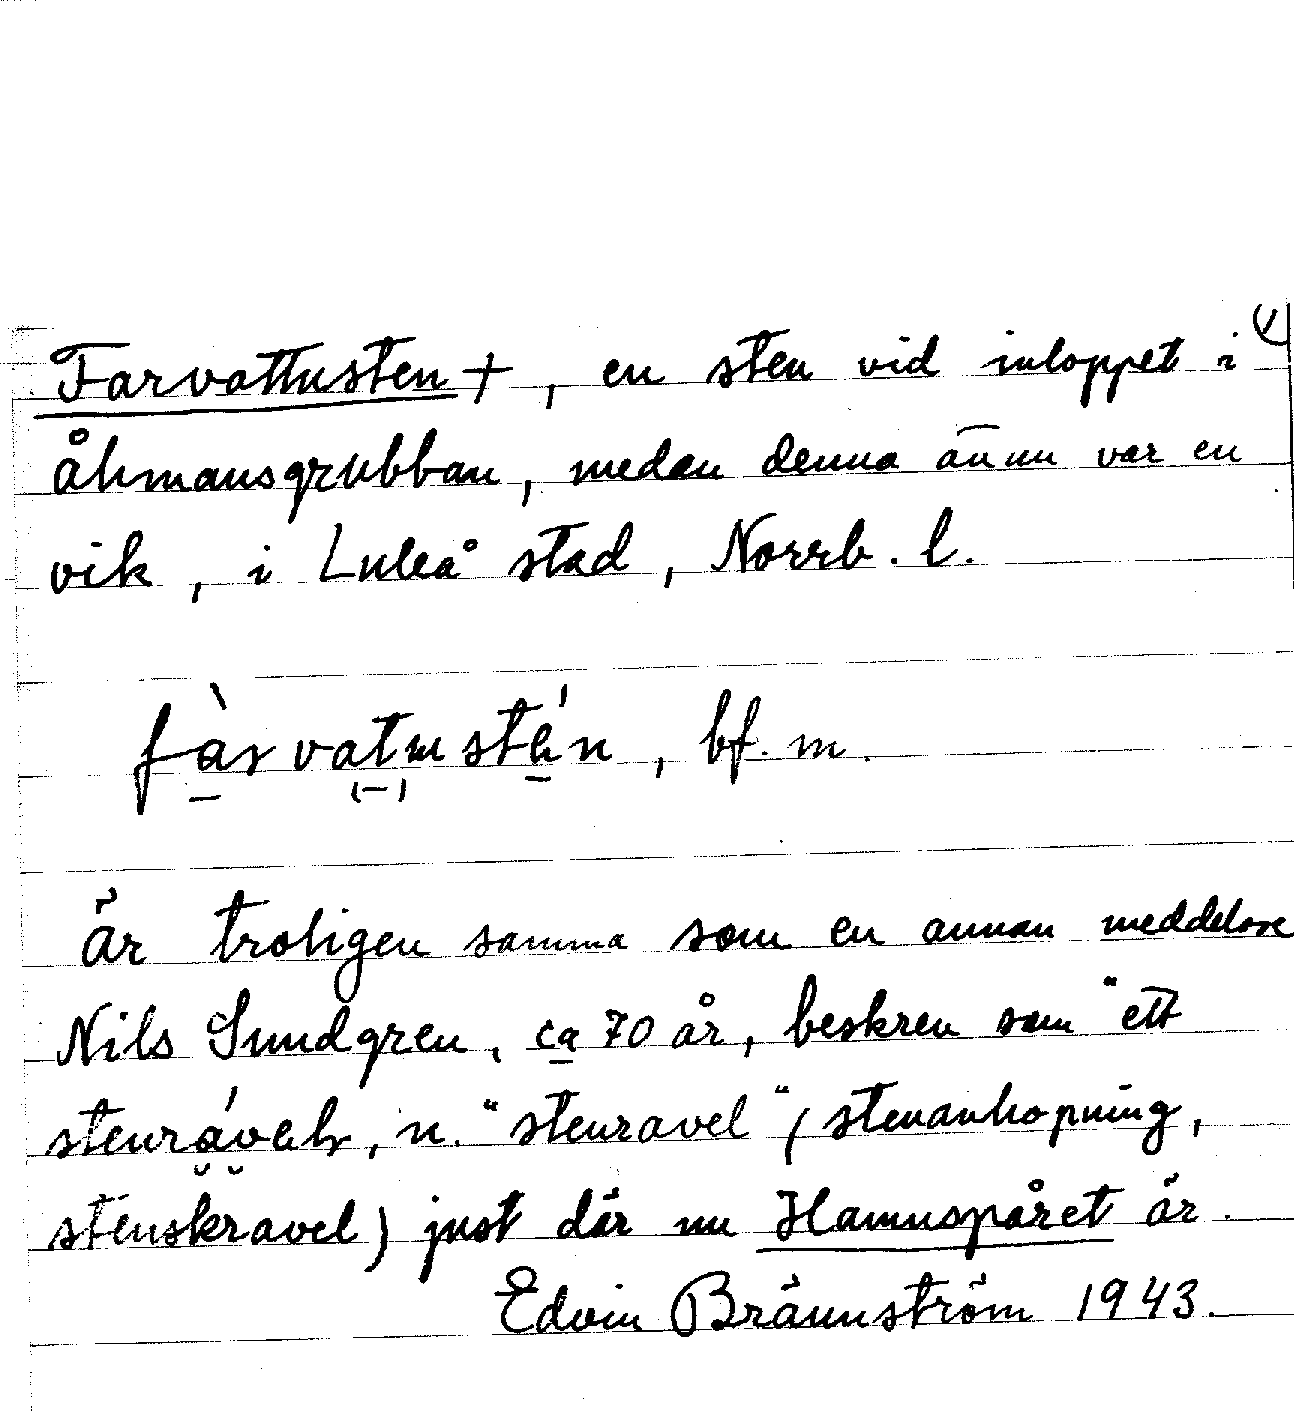 Farvattnsten +, en sten vid inloppet i
åhmansgrubban, medan denna ännu var en
vik, i Luleå stad, Norrb. l.
fàrvatnstén, bf. m.
är troligen samma som en annan meddelare
Nils Sundgren, ca 70 år, beskrev som "ett
stenrável, n. "stenravel" (stenanhopning,
stenskravel) just där nu Hamnspåret är.
Edvin Brännström 1943.